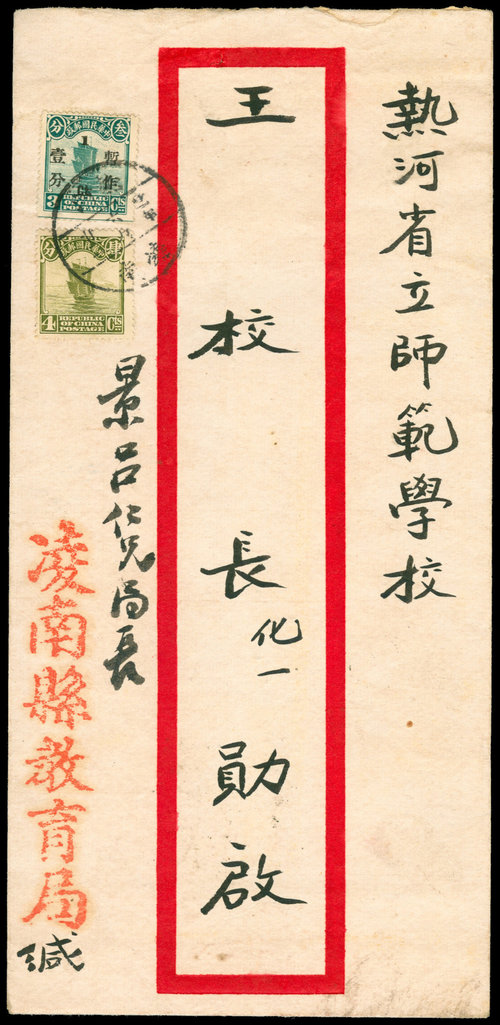 熱河省立師範學校
王校長化一勛啟
景呂仁兄局長
凌南縣教育局緘
叁 中華民國郵政 分
暫作
壹分
3 Cts
REPUBLIC
OF CHINA
POSTAGE
肆 中華民國郵政 分
4 Cts
REPUBLIC
OF CHINA
POSTAGE